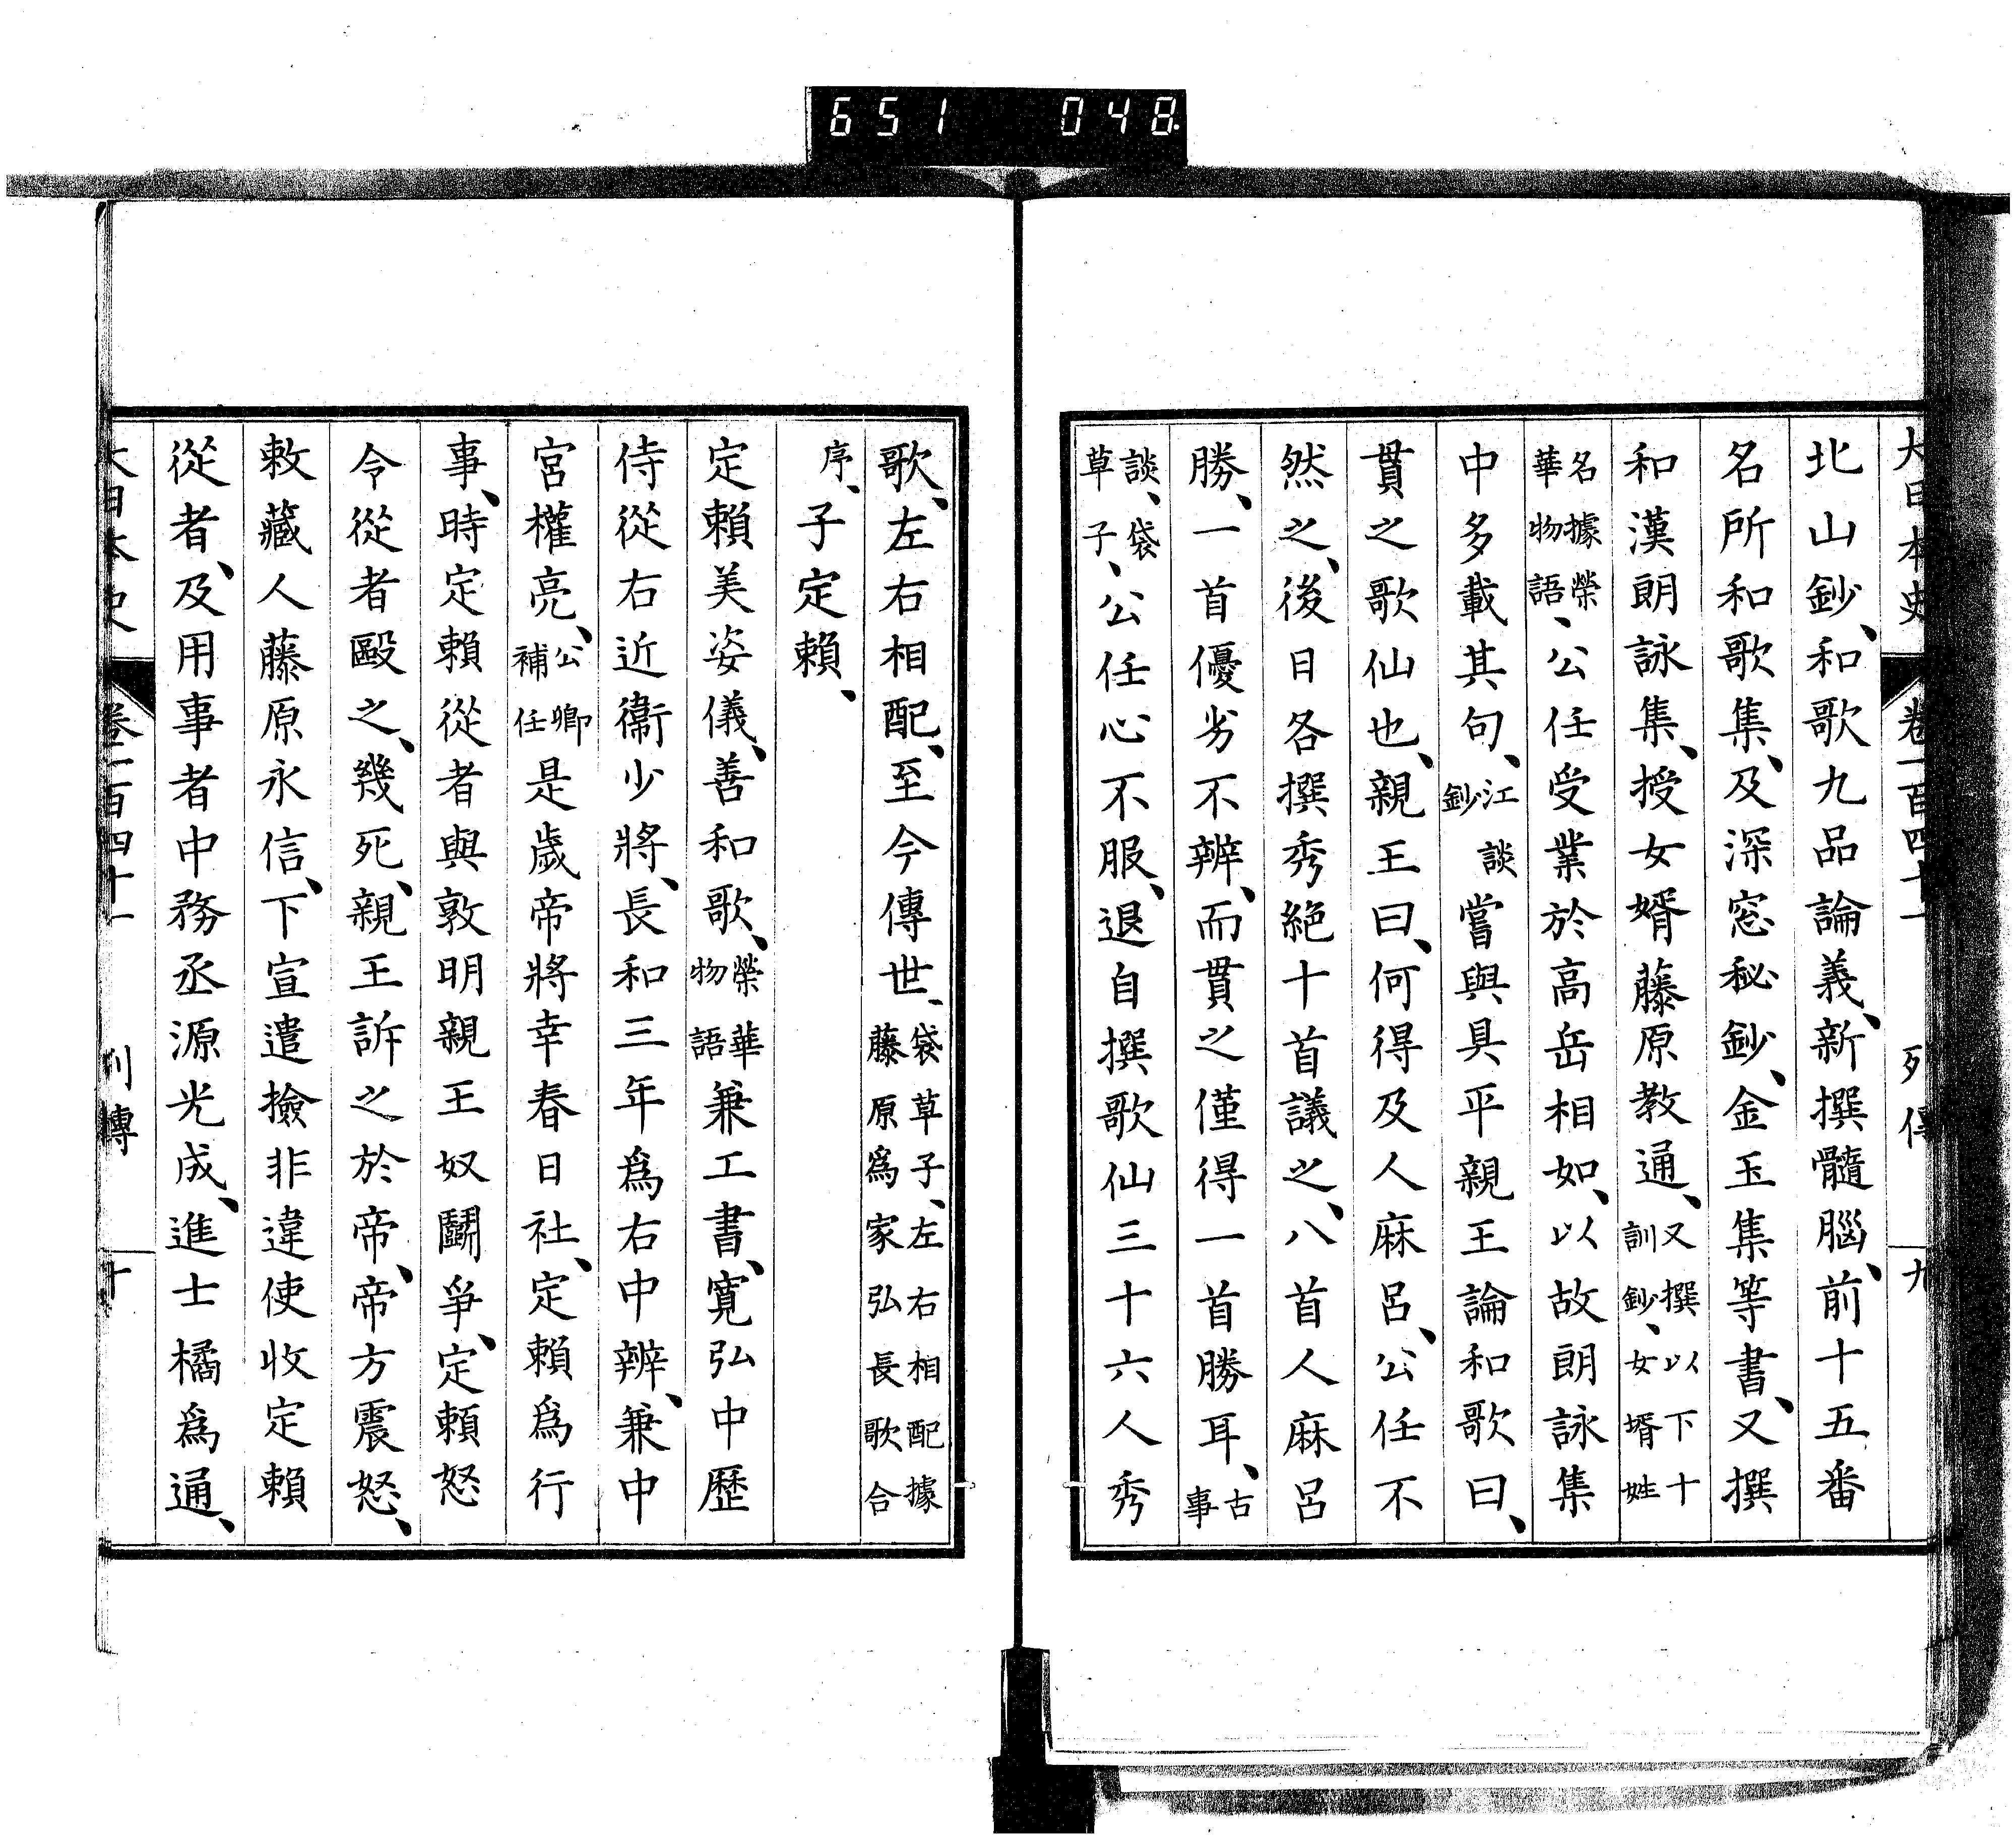 651 048
大日本史 卷一百四十一 列傳 九
北山鈔、和歌九品論義、新撰髓腦、前十五番
名所和歌集、及深窓秘鈔、金玉集等書、又撰
和漢朗詠集、授女婿藤原教通、又撰以下十訓鈔、女壻姓
名據榮華物語、公任受業於高岳相如、以故朗詠集
中多載其句、江談鈔嘗與具平親王論和歌曰、
貫之歌仙也、親王曰、何得及人麻呂、公任不
然之、後日各撰秀絕十首議之、八首人麻呂
勝、一首優劣不辨、而貫之僅得一首勝耳、古事
談、袋草子、公任心不服、退自撰歌仙三十六人秀
歌、左右相配、至今傳世、袋草子、左右相配據藤原爲家弘長歌合
序、子定賴、
定賴美姿儀、善和歌、榮華物語兼工書、寬弘中歷
侍從右近衞少將、長和三年爲右中辨、兼中
宮權亮、公卿補任是歲帝將幸春日社、定賴爲行
事、時定賴從者與敦明親王奴鬪爭、定賴怒
令從者毆之、幾死、親王訴之於帝、帝方震怒、
敕藏人藤原永信、下宣遣撿非違使收定賴
從者、及用事者中務丞源光成、進士橘爲通、
大日本史 卷一百四十一 列傳 十